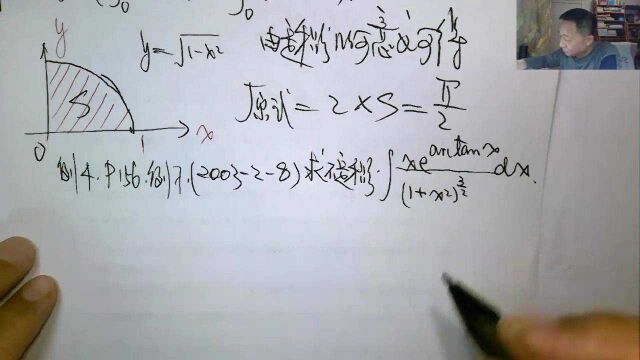 y
y=√(1-x²) 由定积分的几何意义可得
S
原式=2×S=π/2
0 1 x
例4.P156.例7.(2003-2-8)求不定积分∫ xe^{arctanx}/(1+x²)^{3/2} dx.